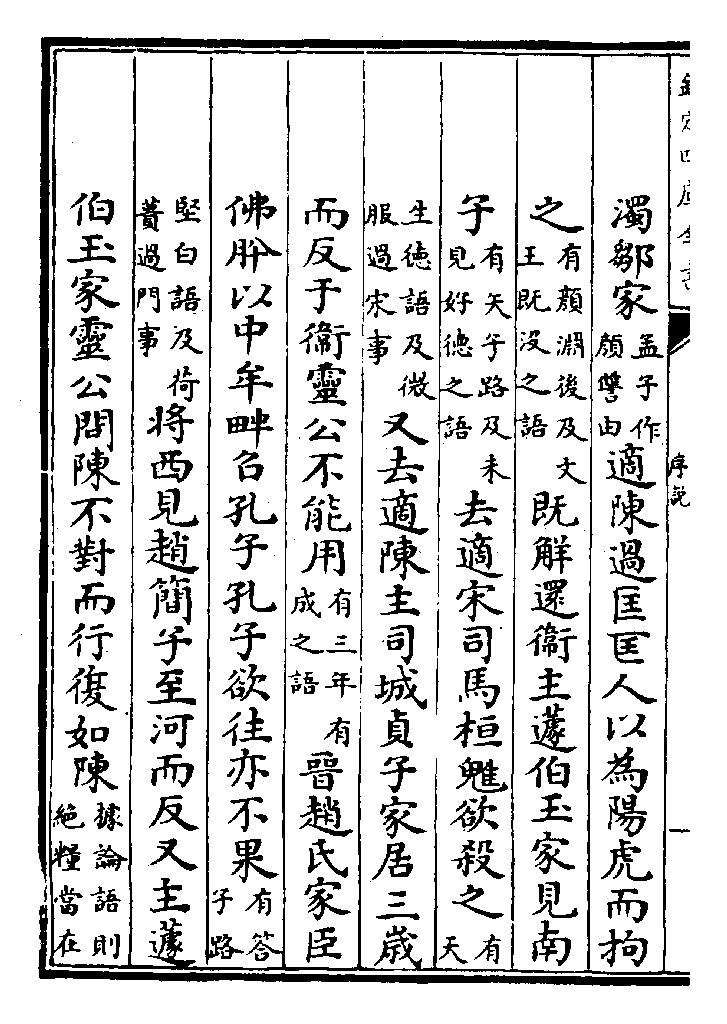 欽定四庫全書
序說
濁鄒家孟子作顔讐由適陳過匡匡人以為陽虎而拘
之有顔淵後及文王既没之語既解還衞主蘧伯玉家見南
子有矢子路及未見好德之語去適宋司馬桓魋欲殺之有天
生德語及微服過宋事又去適陳主司城貞子家居三歲
而反于衞靈公不能用有三年有成之語晉趙氏家臣
佛肸以中牟畔召孔子孔子欲往亦不果有答子路
堅白語及荷蕢過門事將西見趙簡子至河而反又主蘧
伯玉家靈公問陳不對而行復如陳據論語則絶糧當在